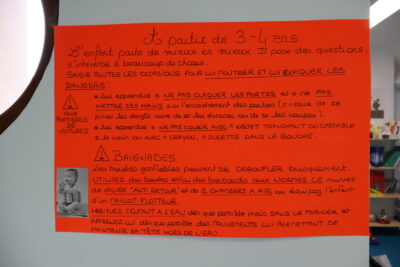 A partir de 3-4 ans
L'enfant parle de mieux en mieux. Il pose des questions,
s'intéresse à beaucoup de choses.
SAISIR TOUTES LES OCCASIONS POUR LUI MONTRER ET LUI EXPLIQUER LES
DANGERS :
• lui apprendre à NE PAS CLAQUER LES PORTES et à ne PAS
METTRE SES MAINS sur l'encadrement des portes (risque de se
pincer les doigts voire de se les écraser ou de se les couper).
AUX
PORTIÈRES DE
VOITURES
• lui apprendre à NE PAS COURIR AVEC 1 OBJET TRANCHANT OU CASSABLE
à la main ou avec 1 CRAYON, 1 SUCETTE DANS LA BOUCHE.
BAIGNADES
Les bouées gonflables peuvent se DEGONFLER brusquement
UTILISEZ des bouées et/ou des brassards aux NORMES CE munies
de VALVES "ANTI RETOUR" et de 2 CHAMBRES A AIR ou équipez l'enfant
d'un MAILLOT FLOTTEUR
HABITUEZ L'ENFANT A L'EAU dès que possible mais SANS LE FORCER et
APPRENEZ LUI dès que possible des MOUVEMENTS LUI PERMETTANT DE
MAINTENIR SA TÊTE HORS DE L'EAU.